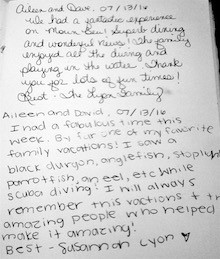 Aileen and Dave, 07/13/16
We had a fantastic experience
on Moun Sea! Superb dining
and wonderful views! The family
enjoyed all the diving and
playing in the water. Thank
you for lots of fun times!
The Lyon Family
Aileen and David, 07/13/16
I had a fabulous time this
week. By far one of my favorite
family vacations! I saw a
black durgon, angelfish, stoplight
parrotfish, an eel, etc while
scuba diving! I will always
remember this vactions + th
amazing people who helped
make it amazing!
Best - Susannah Lyon ♥